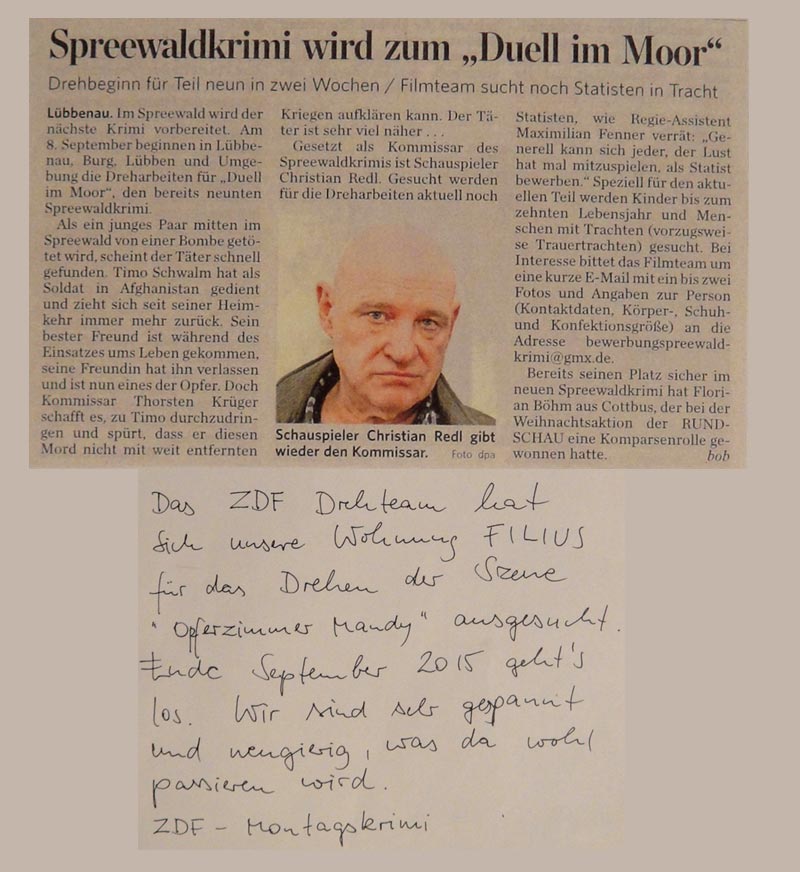 Spreewaldkrimi wird zum „Duell im Moor“
Drehbeginn für Teil neun in zwei Wochen / Filmteam sucht noch Statisten in Tracht
Lübbenau. Im Spreewald wird der
nächste Krimi vorbereitet. Am
8. September beginnen in Lübbe-
nau, Burg, Lübben und Umge-
bung die Dreharbeiten für „Duell
im Moor“, den bereits neunten
Spreewaldkrimi.
Als ein junges Paar mitten im
Spreewald von einer Bombe getö-
tet wird, scheint der Täter schnell
gefunden. Timo Schwalm hat als
Soldat in Afghanistan gedient
und zieht sich seit seiner Heim-
kehr immer mehr zurück. Sein
bester Freund ist während des
Einsatzes ums Leben gekommen,
seine Freundin hat ihn verlassen
und ist nun eines der Opfer. Doch
Kommissar Thorsten Krüger
schafft es, zu Timo durchzudrin-
gen und spürt, dass er diesen
Mord nicht mit weit entfernten
Kriegen aufklären kann. Der Tä-
ter ist sehr viel näher . . .
Gesetzt als Kommissar des
Spreewaldkrimis ist Schauspieler
Christian Redl. Gesucht werden
für die Dreharbeiten aktuell noch
Schauspieler Christian Redl gibt
wieder den Kommissar. Foto dpa
Statisten, wie Regie-Assistent
Maximilian Fenner verrät: „Ge-
nerell kann sich jeder, der Lust
hat mal mitzuspielen, als Statist
bewerben.“ Speziell für den aktu-
ellen Teil werden Kinder bis zum
zehnten Lebensjahr und Men-
schen mit Trachten (vorzugswei-
se Trauertrachten) gesucht. Bei
Interesse bittet das Filmteam um
eine kurze E-Mail mit ein bis zwei
Fotos und Angaben zur Person
(Kontaktdaten, Körper-, Schuh-
und Konfektionsgröße) an die
Adresse bewerbungspreewald-
krimi@gmx.de.
Bereits seinen Platz sicher im
neuen Spreewaldkrimi hat Flori-
an Böhm aus Cottbus, der bei der
Weihnachtsaktion der RUND-
SCHAU eine Komparsenrolle ge-
wonnen hatte. bob
Das ZDF Drehteam hat
sich unsere Wohnung FILIUS
für das Drehen der Szene
"Opferzimmer Mandy" ausgesucht.
Ende September 2015 geht's
los. Wir sind sehr gespannt
und neugierig, was da wohl
passieren wird.
ZDF - Montagskrimi